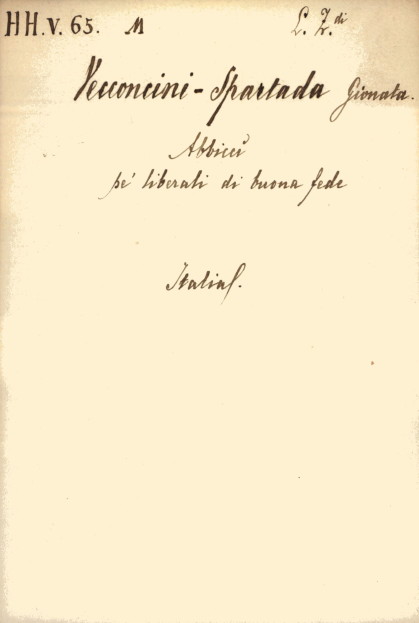 HH.V.65. M L. Z.di
Vecconcini-Spartada Gionata.
Abbiccì
pe' liberali di buona fede
Italia